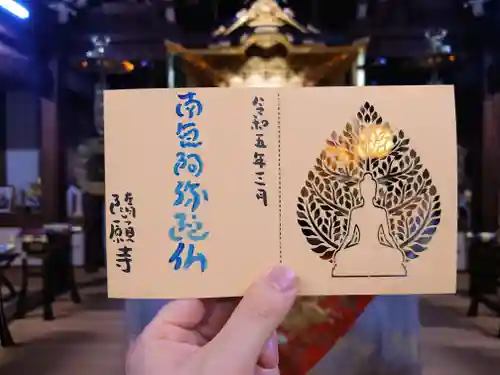 令和五年三月
南無阿弥陀仏